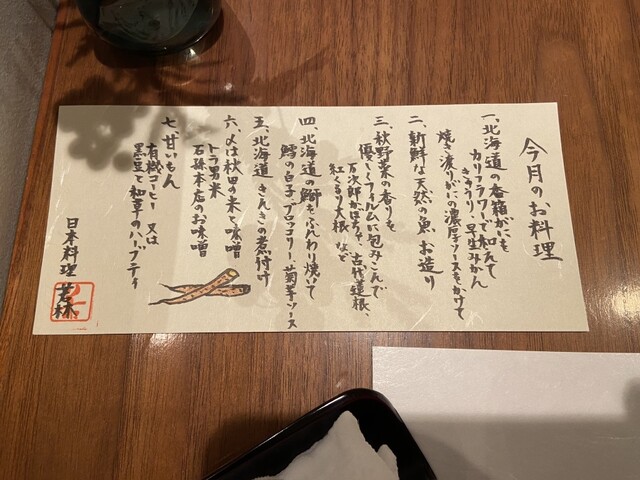 今月のお料理
一、北海道の香箱がにを
カリフラワーで和えて
きゅうり・早生みかん
焼き渡りがにの濃厚ソースをかけて
二、新鮮な天然の魚 お造り
三、秋野菜の香りを
優しくフィルムに包みこんで
万次郎かぼちゃ、古代蓮根、
紅くるり大根 など
四、北海道の鰤をふんわり焼いて
鱈の白子、ブロッコリー、菊芋ソース
五、北海道 きんきの煮付け
六、〆は秋田の米と味噌
トラ男米
石孫本店のお味噌
七、甘いもん
有機コーヒー 又は
黒豆と和草のハーブティ
日本料理 若林